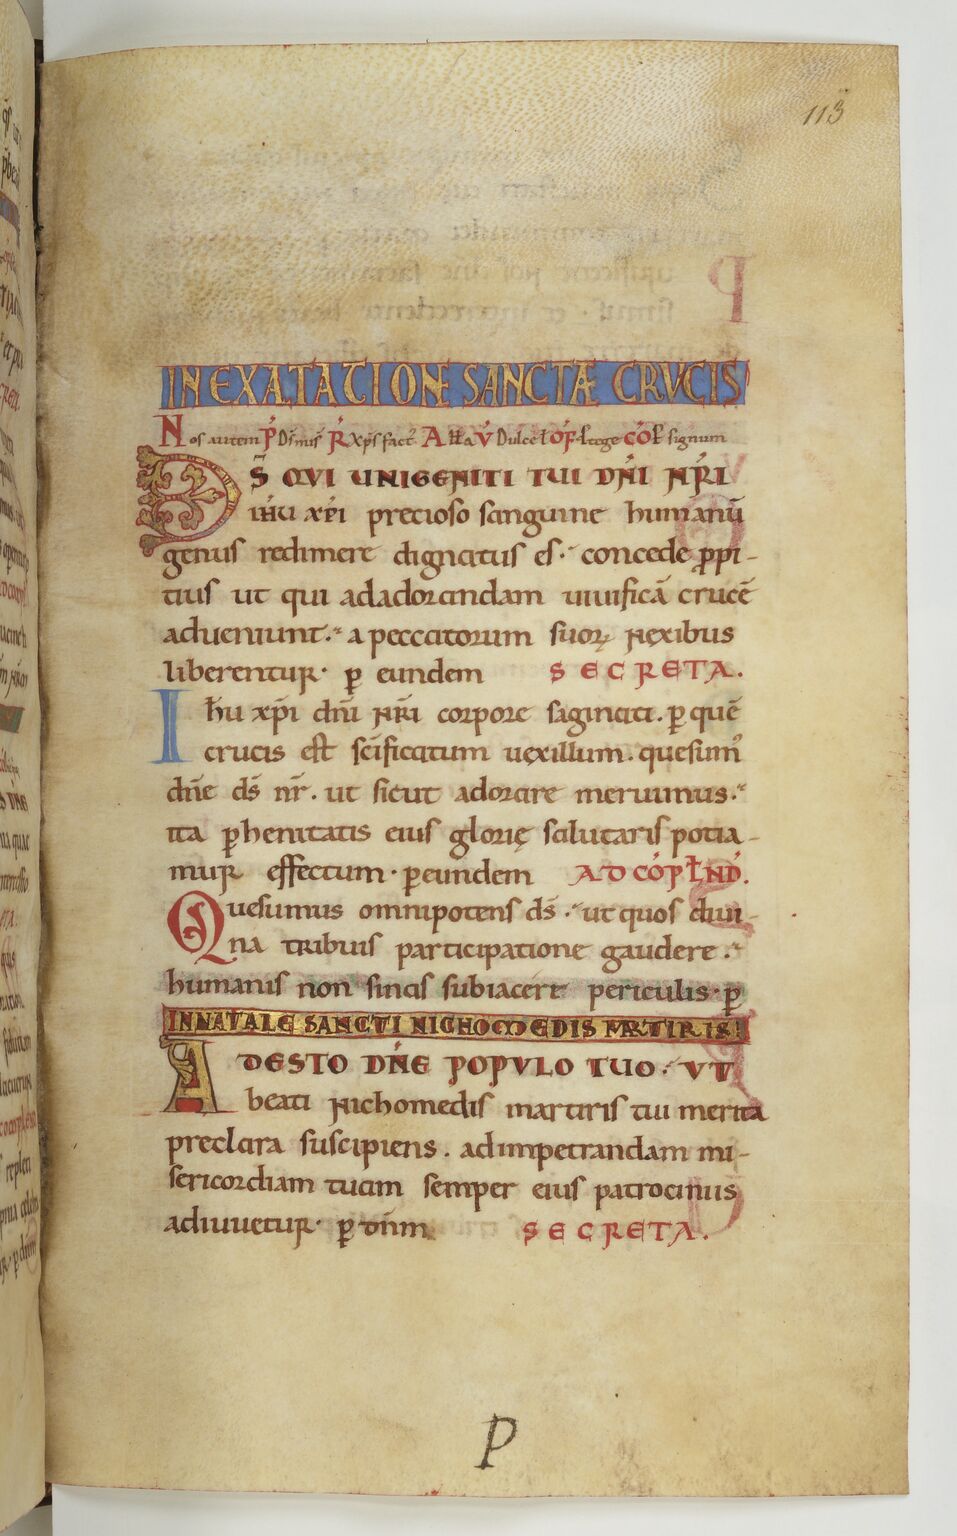 113
IN EXATATIONE SANCTÆ CRVCIS
Nos autem P̃ Ds̄ mis̃ R̃ Xp̄s fact᷒ Alla V̓ Dulce l̄ OF̃ tege CO᷒ ꝑ signum
DS̄ QVI UNIGENITI TUI DN̄I NR̄I
ih̄u xp̄i precioso sanguine humanū
genus redimere dignatus es. concede ꝓpi-
tius ut qui adadorandam uiuificā crucē
adueniunt. a peccatorum suoꝝ nexibus
liberentur. ꝑ eundem SECRETA.
Ih̄u xp̄i dn̄i nr̄i corpore saginati. ꝑ quē
crucis est sc̄ificatum uexillum. quesum᷒
dn̄e ds̄ nr̄. ut sicut adorare meruimus.
ita ꝑhenitatis eius glorię salutaris potia-
mur effectum. ꝑ eundem AD COPLEND̄.
Quesumus omnipotens ds̄. ut quos diui-
na tribuis participatione gaudere.
humanis non sinas subiacere periculis. ꝑ
IN NATALE SANCTI NICHOMEDIS MRTIRIS
ADESTO DN̄E POPVLO TUO. VT
beati Nichomedis martiris tui merita
preclara suscipiens. ad impetrandam mi-
sericordiam tuam semper eius patrociniis
adiuuetur. ꝑ dn̄m. SECRETA.
P